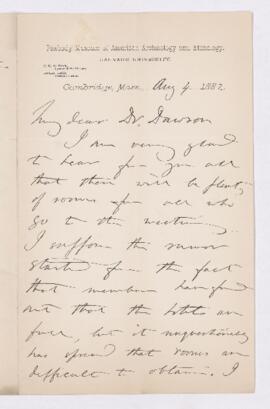 Peabody Museum of American Archæology and Ethnology.
Cambridge, Mass. Aug 4 1882.
My dear Dr. Dawson
I am very glad
to hear from you all
that there will be plenty
of rooms for all who
go to the meeting.
I suppose the rumor
started from the fact
that members have found
out that the hotels are
full, but it unquestionably
has spread that rooms are
difficult to obtain. I